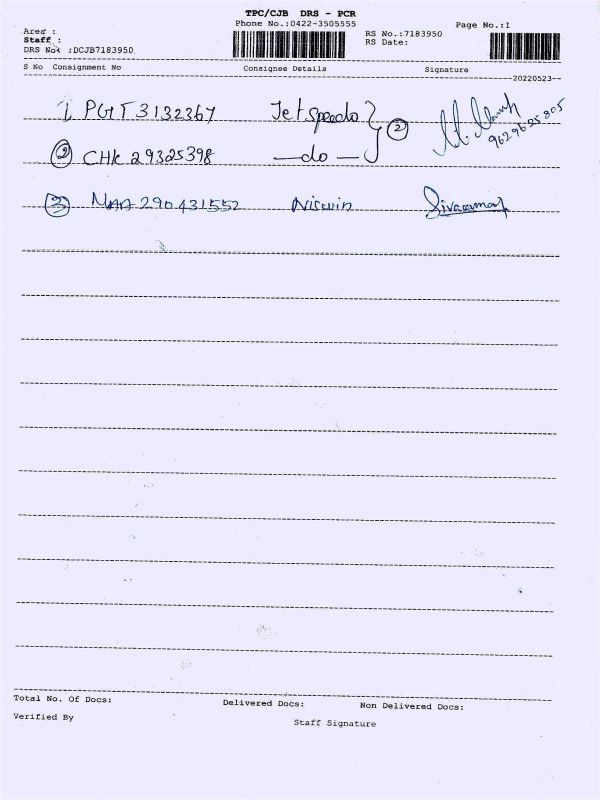 TPC/CJB DRS - PCR
Phone No.:0422-3505555
Page No.:1
Area :
Staff :
DRS No :DCJB7183950
RS No.:7183950
RS Date:
S No Consignment No Consignee Details Signature
20220523
1 PGT 3132367 Jetspeedo } 2
9629635805
2 CHK 29325398 —do—
3 MAA 290431552 Niswin Sivakumar
Total No. Of Docs: Delivered Docs: Non Delivered Docs:
Verified By Staff Signature